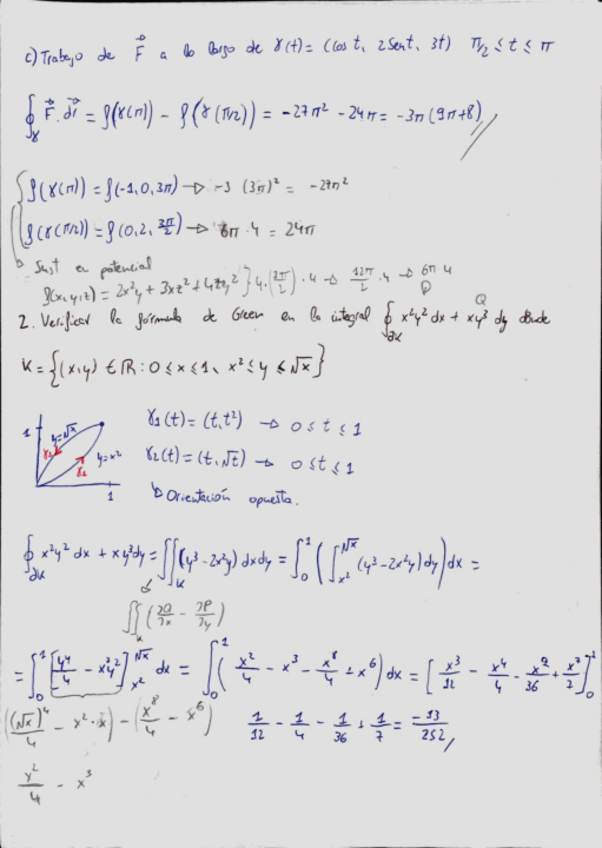 c) Trabajo de F⃗ a lo largo de γ(t) = (cos t, 2 sent, 3t) π/2 ≤ t ≤ π
∮γ F⃗·dr⃗ = f(γ(π)) - f(γ(π/2)) = -27π² - 24π = -3π(9π+8)
f(γ(π)) = f(-1,0,3π) → -3 (3π)² = -27π²
f(γ(π/2)) = f(0,2, 3π/2) → 6π · 4 = 24π
Sust en potencial
f(x,y,z) = 2x²y + 3xz² + 4zy² } 4·(3π/2)·4 → 12π/2 · 4 → 6π·4
P Q
2. Verificar la fórmula de Green en la integral ∮∂K x²y² dx + xy³ dy donde
K = {(x,y) ∈ ℝ : 0 ≤ x ≤ 1, x² ≤ y ≤ √x}
1 y=√x γ2 y=x² γ1 1
γ1(t) = (t,t²) → 0 ≤ t ≤ 1
γ2(t) = (t,√t) → 0 ≤ t ≤ 1
↳ Orientación opuesta.
∮∂K x²y² dx + xy³dy = ∬K (y³ - 2x²y) dxdy = ∫₀¹ (∫x²^√x (y³ - 2x²y) dy) dx =
∬K (∂Q/∂x - ∂P/∂y)
= ∫₀¹ [y⁴/4 - x²y²]x²^√x dx = ∫₀¹ (x²/4 - x³ - x⁸/4 + x⁶) dx = [x³/12 - x⁴/4 - x⁹/36 + x⁷/7]₀¹
((√x)⁴/4 - x²·x) - (x⁸/4 - x⁶) 1/12 - 1/4 - 1/36 + 1/7 = -13/252
x²/4 - x³